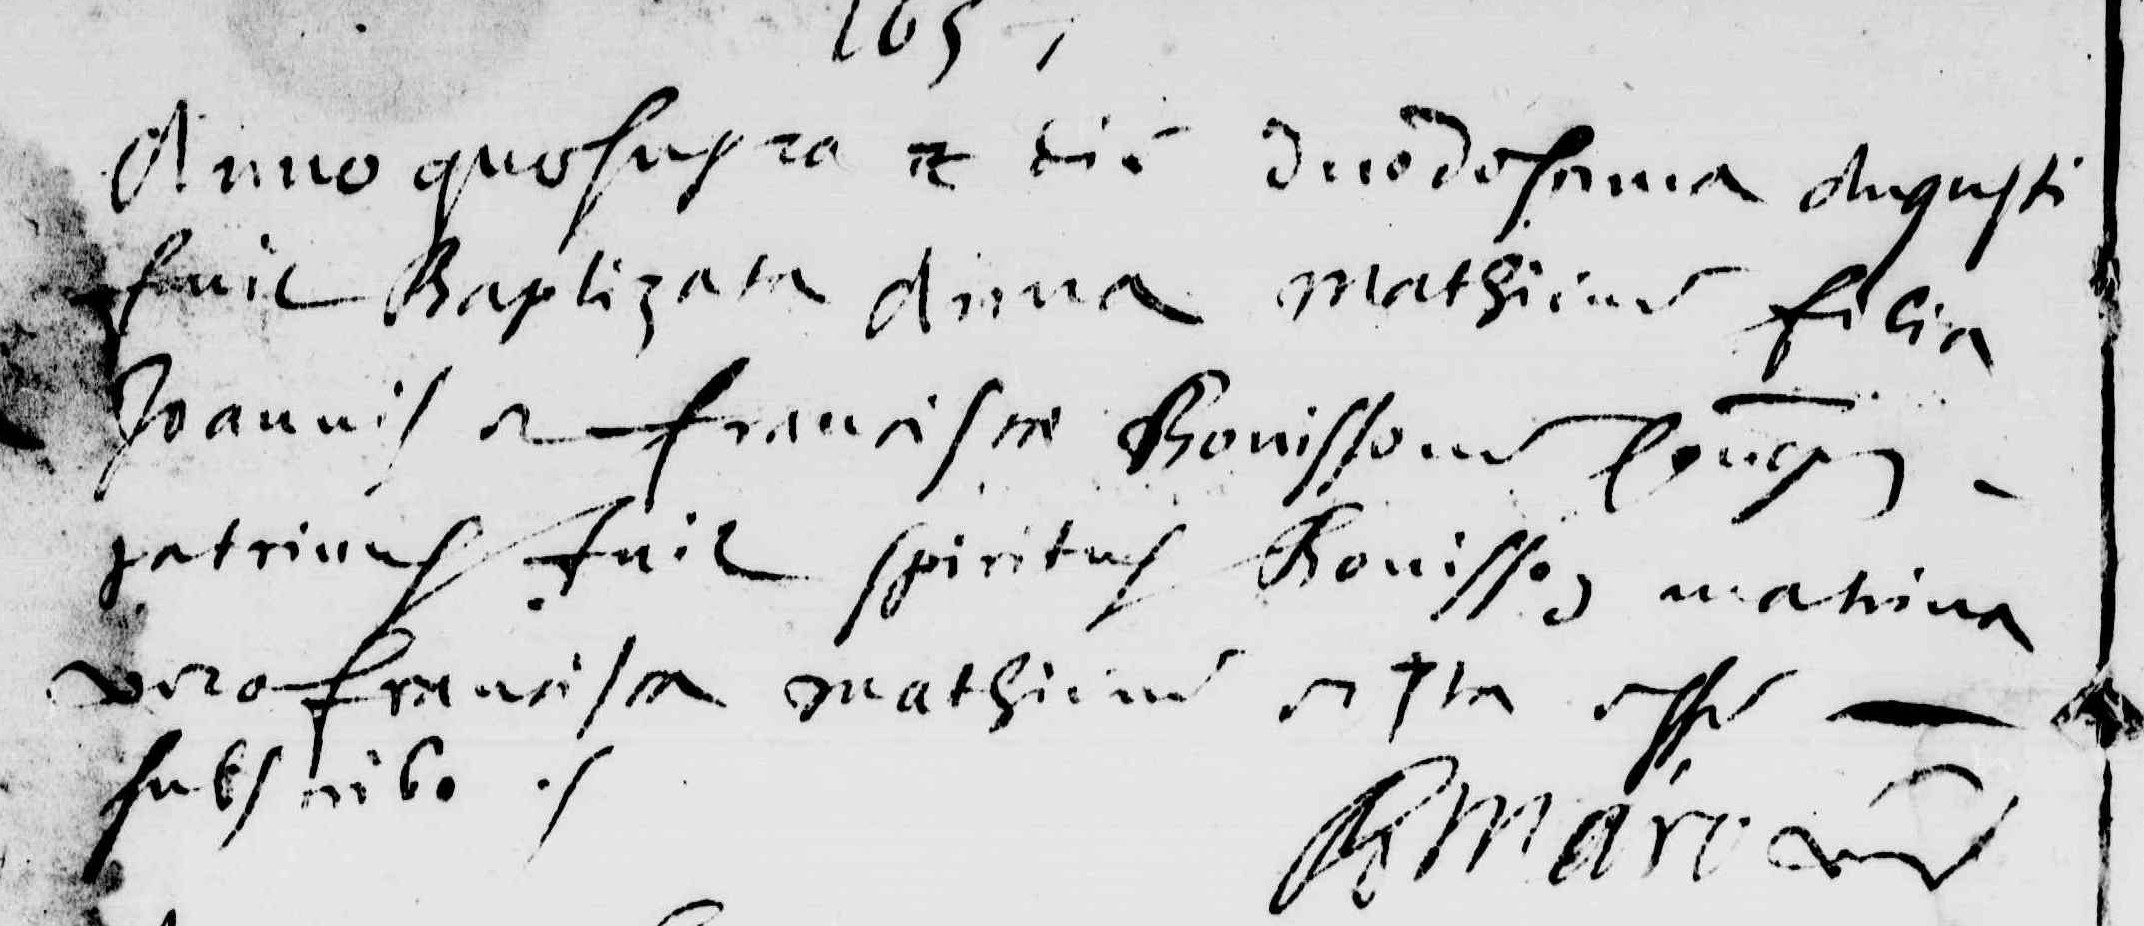 1657
Anno quo supra et die duodesima Augusti
fuit Baptizata Anna Mathieue filia
Joannis et francisce Bouissoue Coniug
patrinus fuit spiritus Bouisso matrina
vero francisca mathieue et ita esse
subscribo